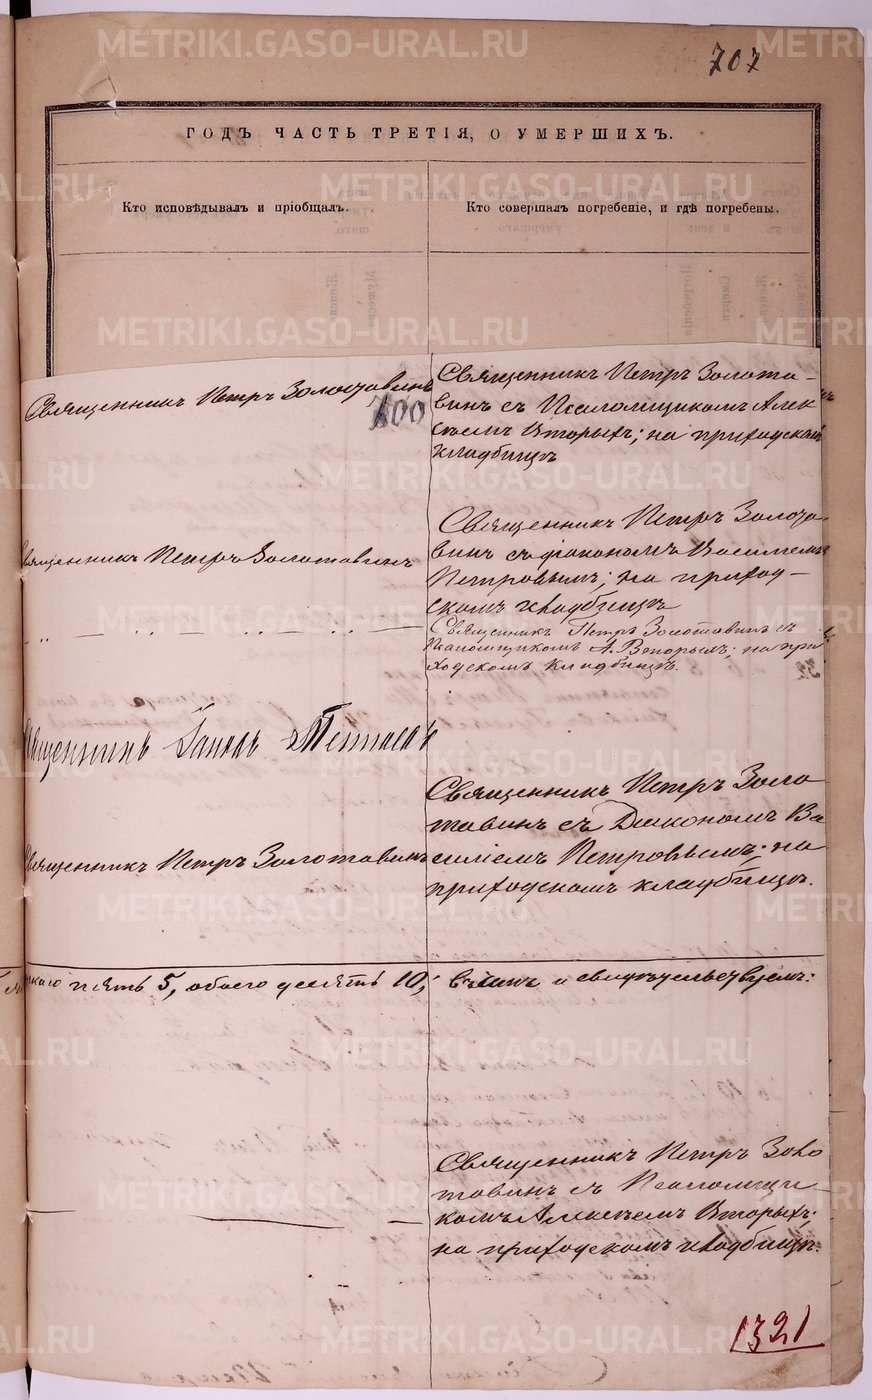 707
ГОДЪ ЧАСТЬ ТРЕТІЯ, О УМЕРШИХЪ.
Кто исповѣдывалъ и пріобщалъ.
Кто совершалъ погребеніе, и гдѣ погребены.
Священникъ Петръ Золотавинъ
700
Священникъ Петръ Золота-
винъ съ Псаломщикомъ Алек
сѣемъ Вторыхъ; на приходскомъ
кладбищѣ
Священникъ Петръ Золотавинъ
Священникъ Петръ Золота-
винъ съ діакономъ Василіемъ
Петровымъ; на приход-
скомъ кладбищѣ
Священникъ Петръ Золотавинъ съ
Псаломщикомъ А. Вторыхъ; на при
ходскомъ кладбищѣ.
Священникъ
Священникъ Петръ Золотавинъ
Священникъ Петръ Золо
тавинъ съ Діакономъ Ва
силіемъ Петровымъ; на
приходскомъ кладбищѣ.
пять 5, обоего десять 10;
свидѣтельствуемъ:
Священникъ Петръ Золо
тавинъ съ Псаломщи
комъ Алексѣемъ Вторыхъ;
на приходскомъ кладбищѣ.
1321
METRIKI.GASO-URAL.RU